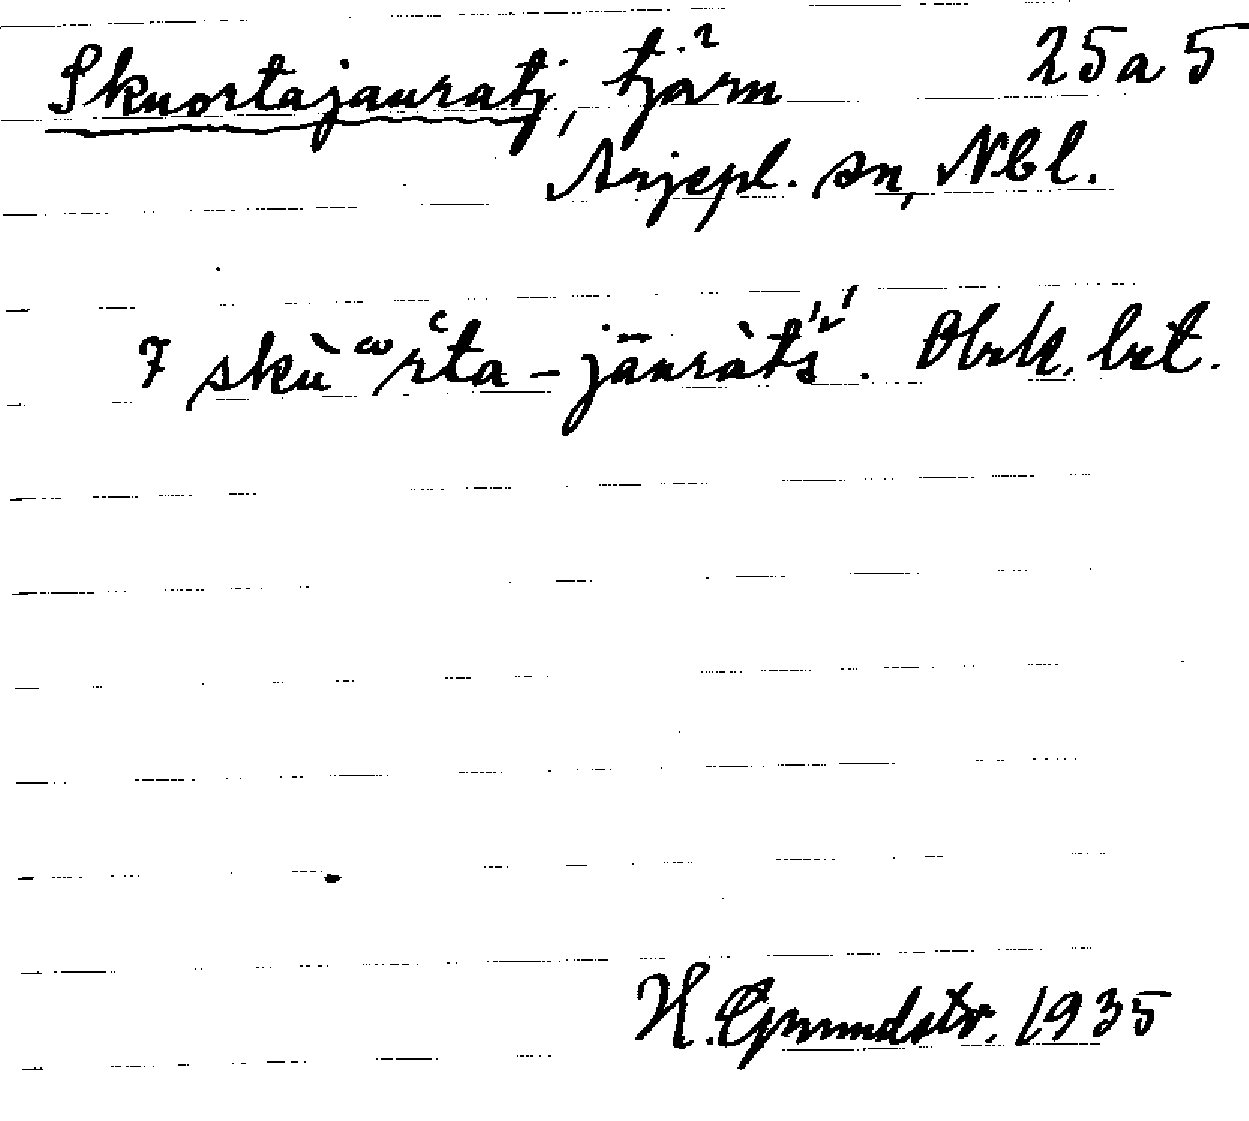 Skuortajauratj, tjärn 25a5
Arjepl. sn, Nbl.
7 skùωrt̔a-jāuràtś. Obek. bet.
H. Grundstr. 1935